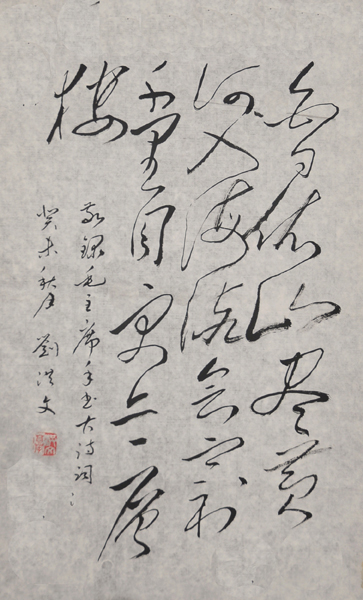 白日依山尽黄
河入海流欲窮
千里目更上一層
樓
敬録毛主席手书古诗词
癸未秋月 劉洪文